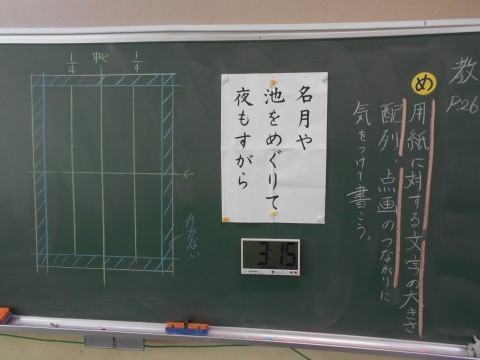 教 P.26
め
用紙に対する文字の大きさ
配列、点画のつながりに
気をつけて書こう。
名月や
池をめぐりて
夜もすがら
3:15
1/4
中心
1/4
かかない